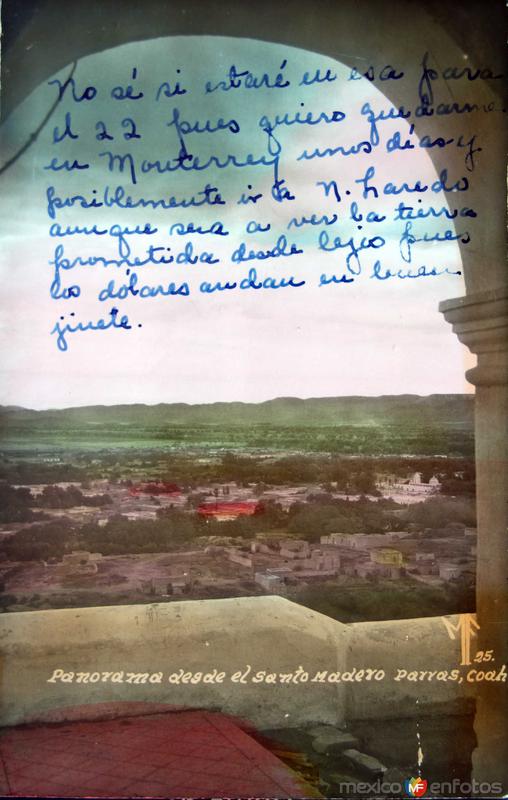 No sé si estaré en esa para
el 22 pues quiero quedarme
en Monterrey unos días y
posiblemente ir a N. Laredo
aunque sea a ver la tierra
prometida desde lejos pues
los dólares andan en buen
jinete.
MF
25.
Panorama desde el Santo Madero Parras, Coah
mexico MF enfotos